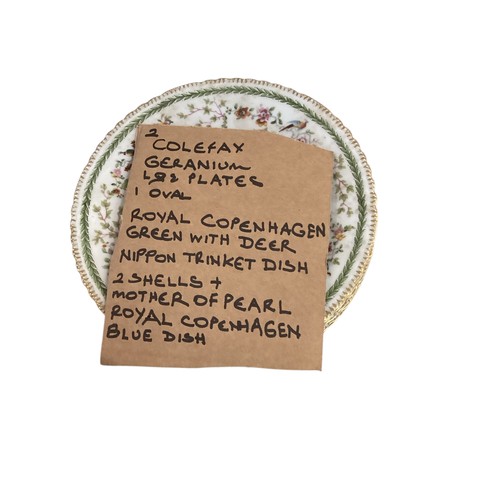 2
COLEFAX
GERANIUM
PLATES
1 OVAL
ROYAL COPENHAGEN
GREEN WITH DEER
NIPPON TRINKET DISH
2 SHELLS +
MOTHER OF PEARL
ROYAL COPENHAGEN
BLUE DISH